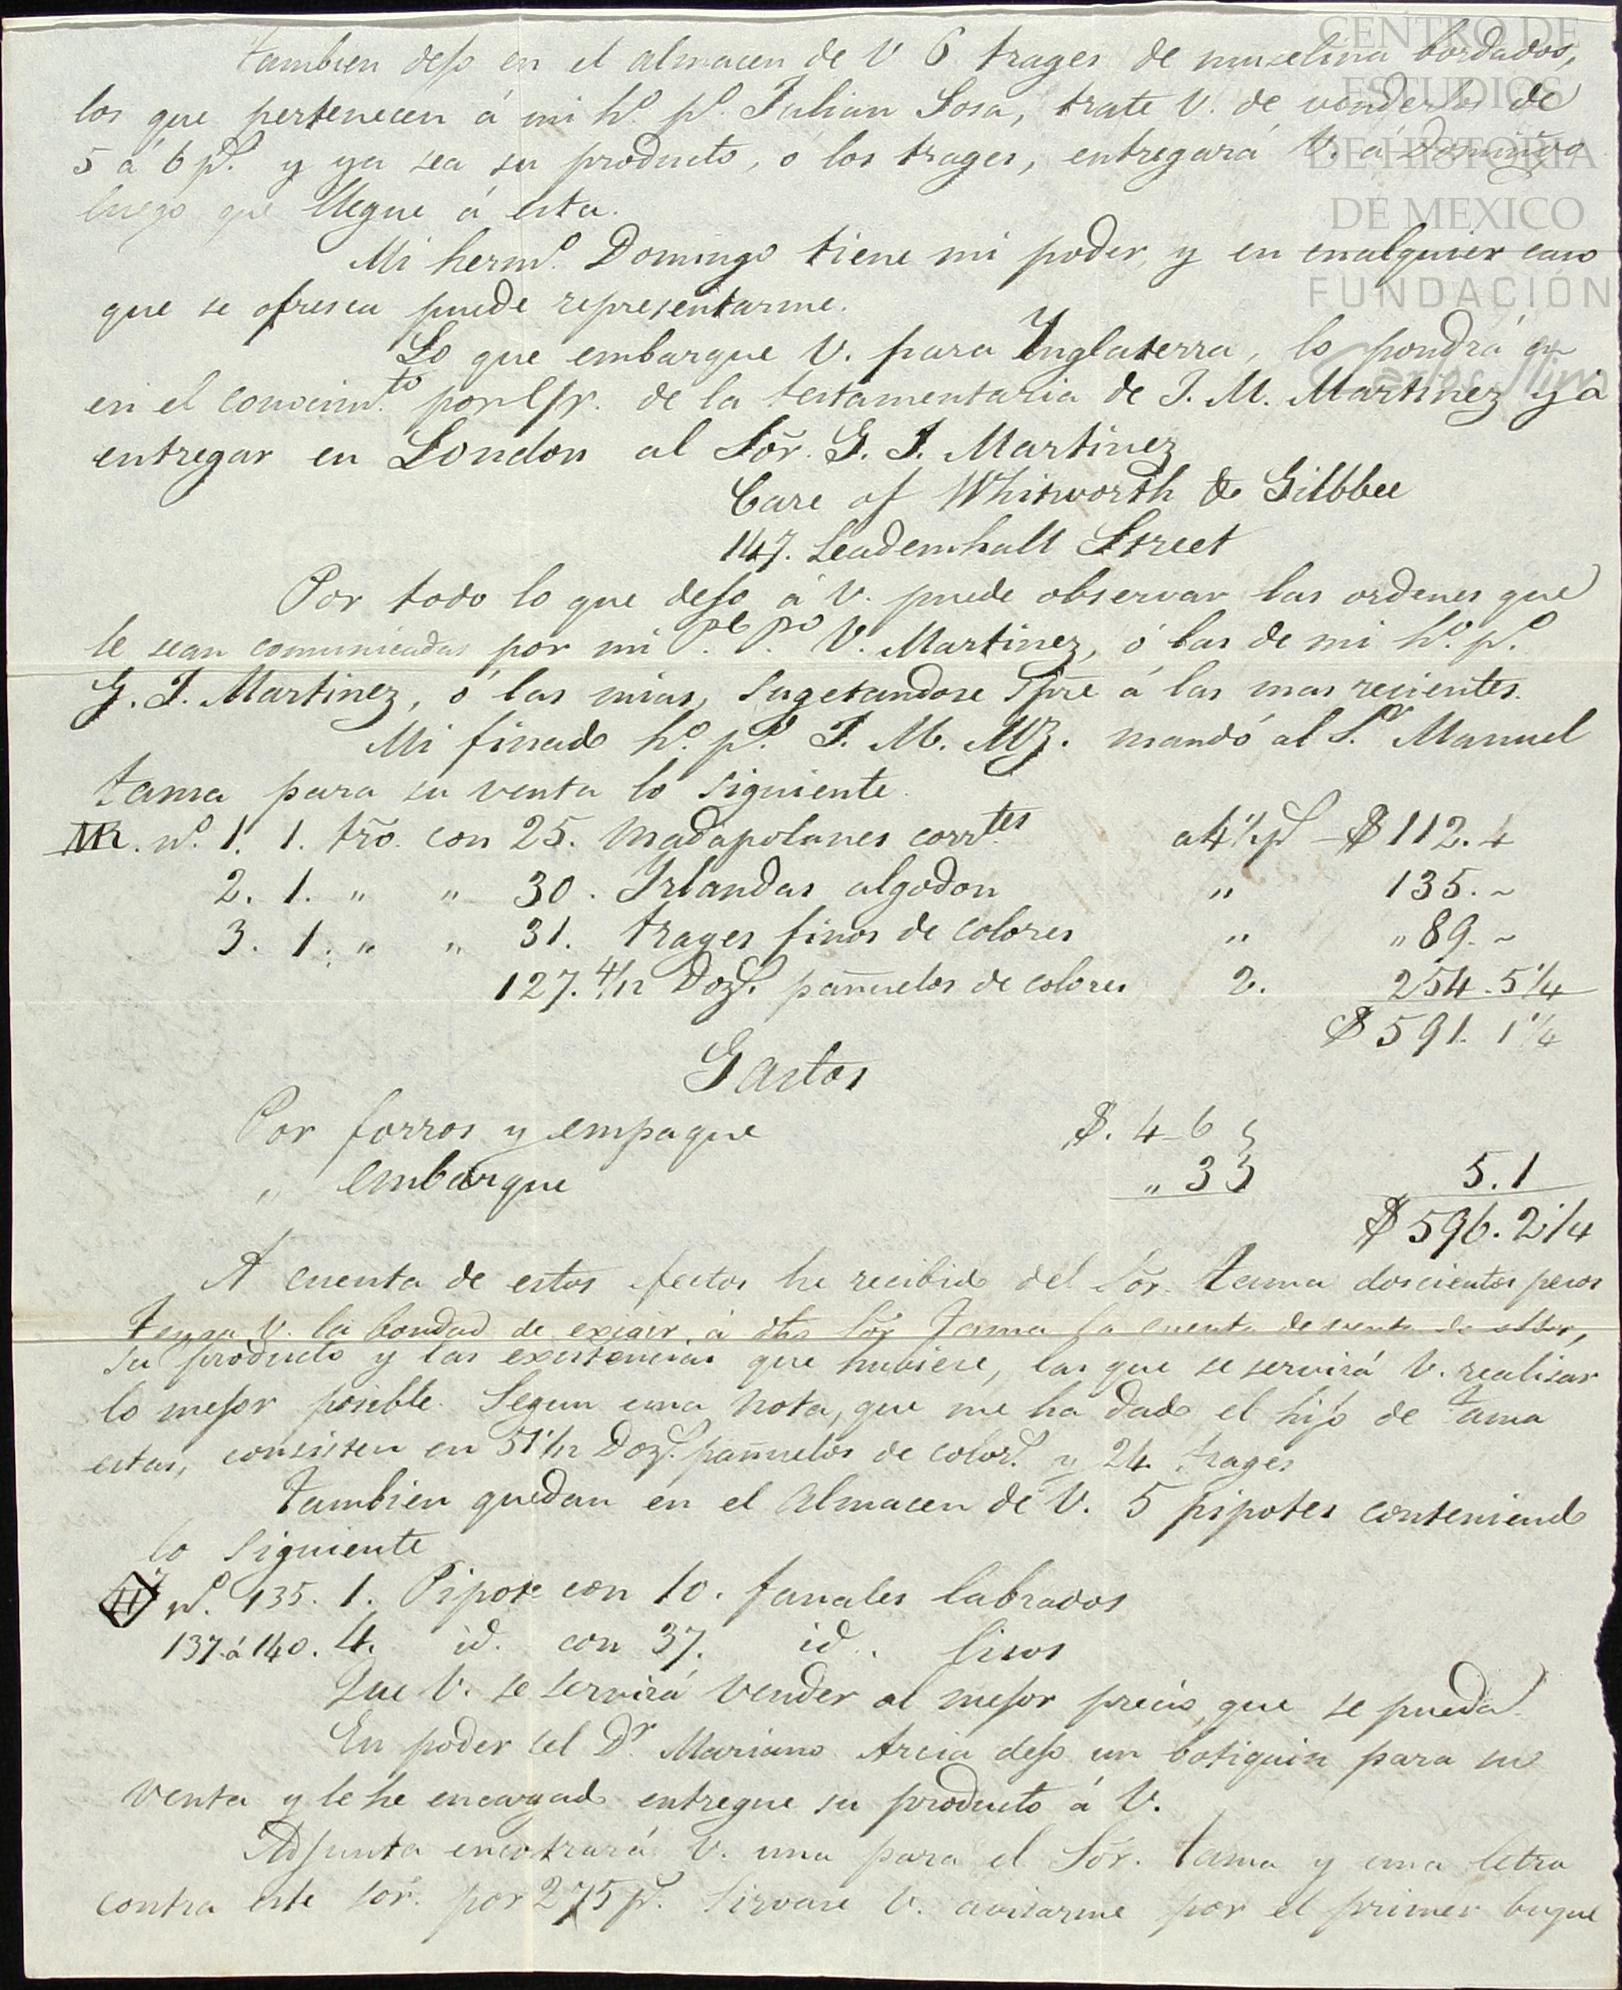 CENTRO DE
ESTUDIOS
DE HISTORIA
DE MEXICO
FUNDACIÓN
Carlos Slim
Tambien dejo en el almacen de V 6 trages de muselina bordados,
los que pertenecen á mi hº. pº. Julian Sosa, trate V. de venderlos de
5 á 6 ps. y ya sea su producto, ó los trages, entregará V. á Domingo
luego que llegue á esta.
Mi hermº. Domingo tiene mi poder, y en cualquier caso
que se ofresca puede representarme.
Lo que embarque V. para Inglaterra, lo pondrá
en el conocimto. por de la testamentaria de J. M. Martinez y á
entregar en London al Sõr. G. J. Martinez
Care of Whitworth & Gilbbee
147. Leademhall Street
Por todo lo que dejo á V. puede observar las ordenes que
le sean comunicadas por mi V. Martinez, ó las de mi hº. pº.
G. J. Martinez, ó las mias, sugetandose spre á las mas recientes.
Mi finado hº. pº. J. M. Mz. mandó al Sr. Manuel
Tama para su venta lo siguiente.
nº. 1. 1. tro. con 25. Madapolanes corrtes a 4½ ps - $ 112. 4
2. 1. " " 30. Irlandas algodon " 135. ~
3. 1. " " 31. trages finos de colores " " 89. ~
127. 4/12 Dozs. pañuelos de colores 2. 254 - 5¼
$ 591. 1¼
Gastos
Por forros y empaque $. 4-6
" embarque " 3 5. 1
$ 596. 2¼
A cuenta de estos efectos he recibido del Sõr. Tama doscientos pesos
Tenga V. la bondad de exigir á dho Sõr Tama la cuenta de venta de ellos,
su producto y las existencias que hubiere, las que se servirá V. realisar
lo mejor posible. Segun una nota, que me ha dado el hijo de Tama
estas, consisten en 51 1/12 Dozs. pañuelos de colors. y 24 trages
Tambien quedan en el almacen de V. 5 pipotes conteniendo
lo siguiente
nº. 135. 1. Pipote con 10. fanales labrados
137 á 140. 4. id. con 37. id. lisos
Que V. se servirá vender al mejor precio, que se pueda.
En poder del Dr. Mariano Arcia dejo un botiquin para su
venta y le he encargado entregue su producto á V.
Adjunta encotrará V. una para el Sõr. Tama y una letra
contra este sõr. por 275 ps. Sirvase V. avisarme por el primer buque